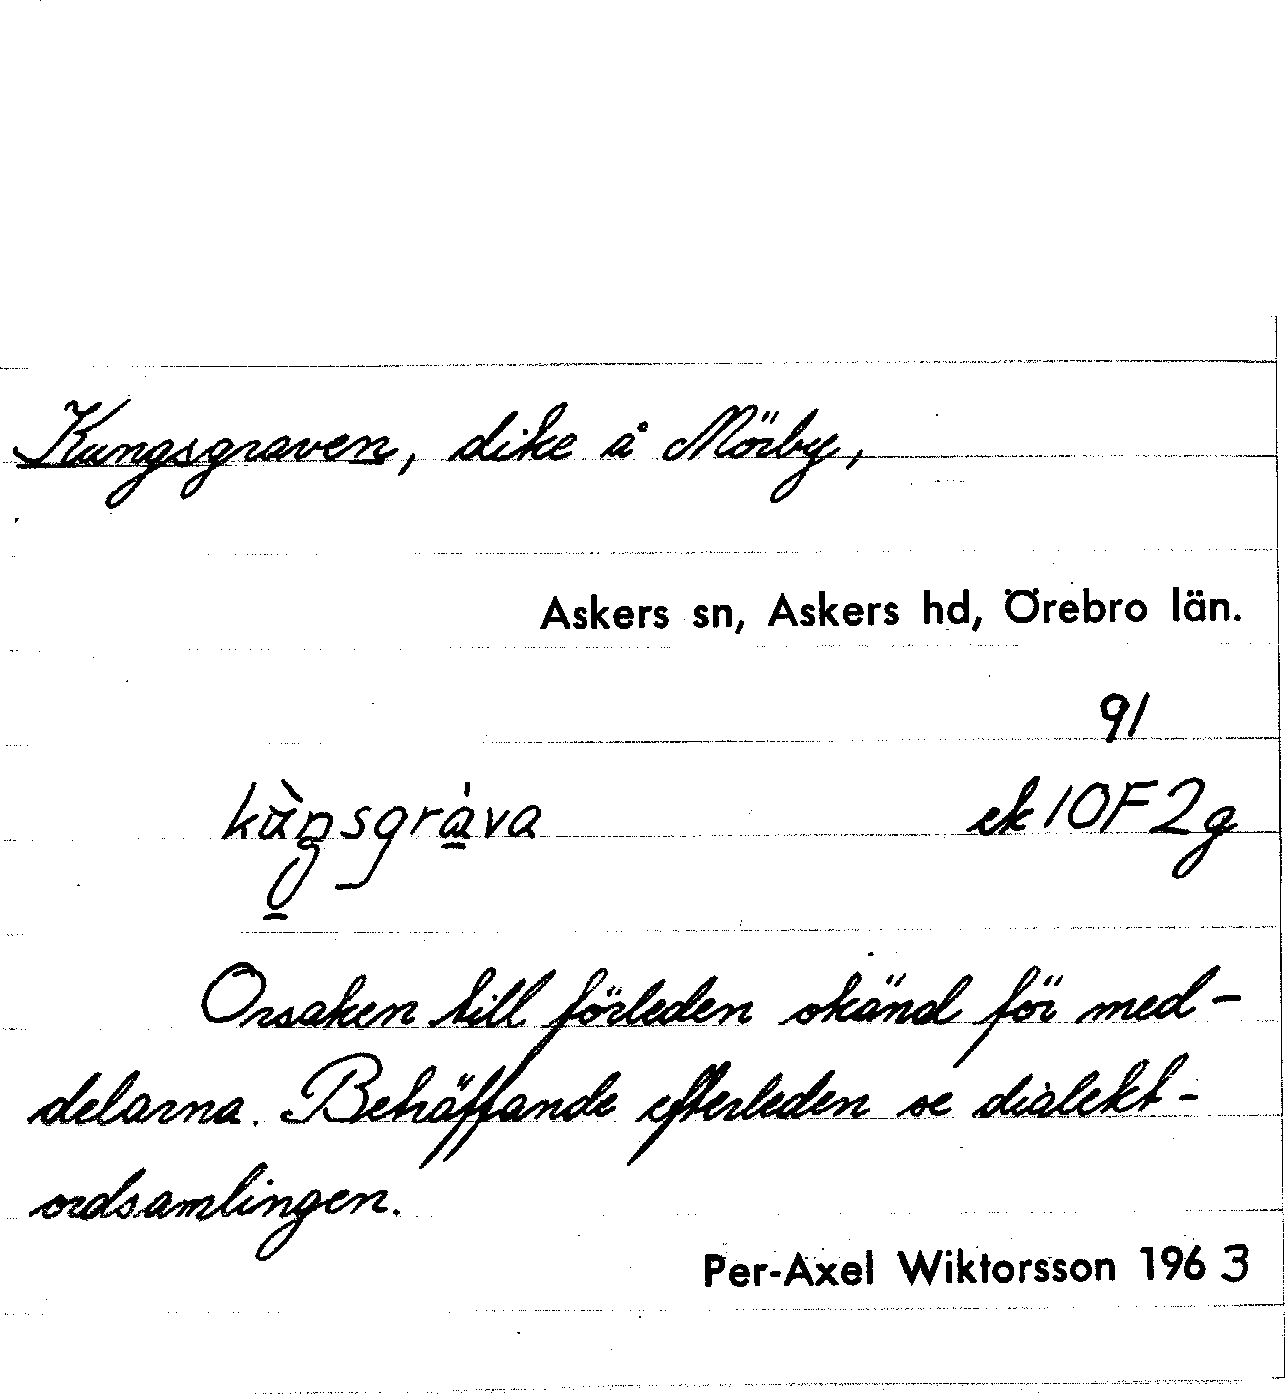 Kungsgraven, dike å Mörby,
Askers sn, Askers hd, Örebro län.
91
kùŋsgráva ek 10F2g
Orsaken till förleden okänd för med-
delarna. Beträffande efterleden se dialekt-
ordsamlingen.
Per-Axel Wiktorsson 1963